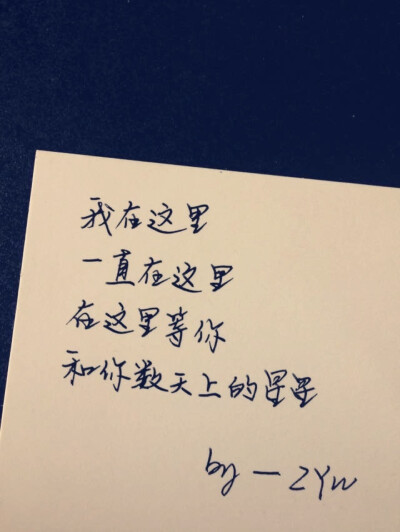 我在这里
一直在这里
在这里等你
和你数天上的星星
by — ZYW